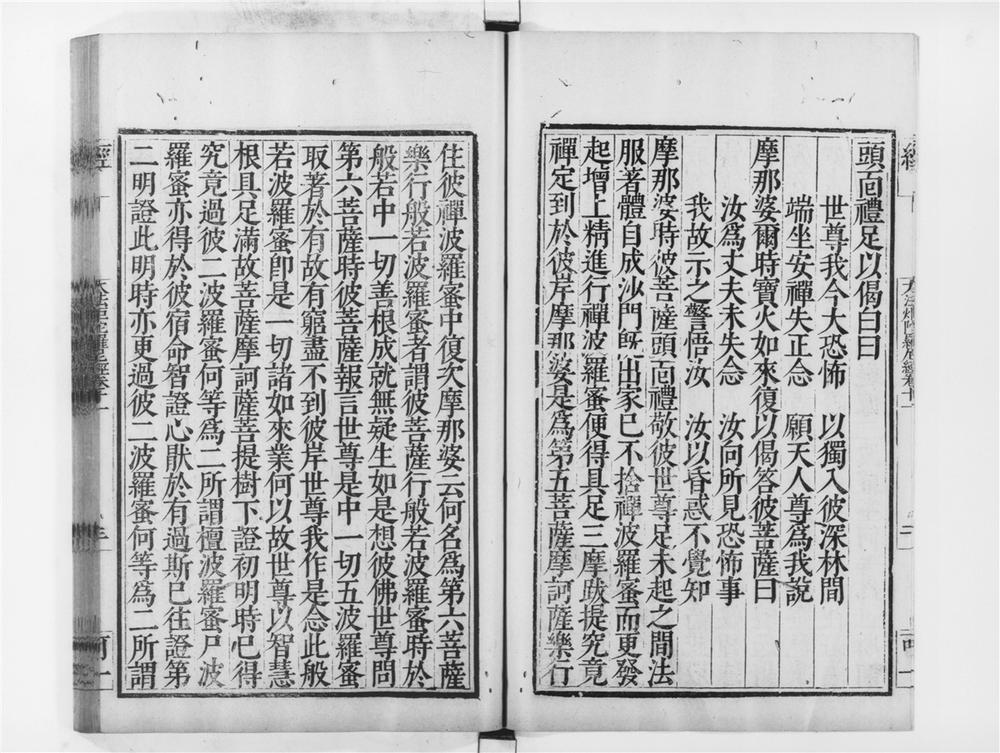 頭面禮足以偈白曰
世尊我今大恐怖　以獨入彼深林間
端坐安禪失正念　願天人尊爲我說
摩那婆爾時寶火如來復以偈答彼菩薩曰
汝爲丈夫未失念　汝向所見恐怖事
我故示之警悟汝　汝以昏惑不覺知
摩那婆時彼菩薩頭面禮敬彼世尊足未起之間法
服著體自成沙門旣出家已不捨禪波羅蜜而更發
起增上精進行禪波羅蜜便得具足三摩跋提究竟
禪定到於彼岸摩那婆是爲第五菩薩摩訶薩樂行
住彼禪波羅蜜中復次摩那婆云何名爲第六菩薩
樂行般若波羅蜜者謂彼菩薩行般若波羅蜜時於
般若中一切善根成就無疑生如是想彼佛世尊問
第六菩薩時彼菩薩報言世尊是中一切五波羅蜜
取著於有故有窮盡不到彼岸世尊我作是念此般
若波羅蜜卽是一切諸如來業何以故世尊以智慧
根具足滿故菩薩摩訶薩菩提樹下證初明時已得
究竟過彼二波羅蜜何等爲二所謂檀波羅蜜尸波
羅蜜亦得於彼宿命智證心猒於有過斯已往證第
二明證此明時亦更過彼二波羅蜜何等爲二所謂